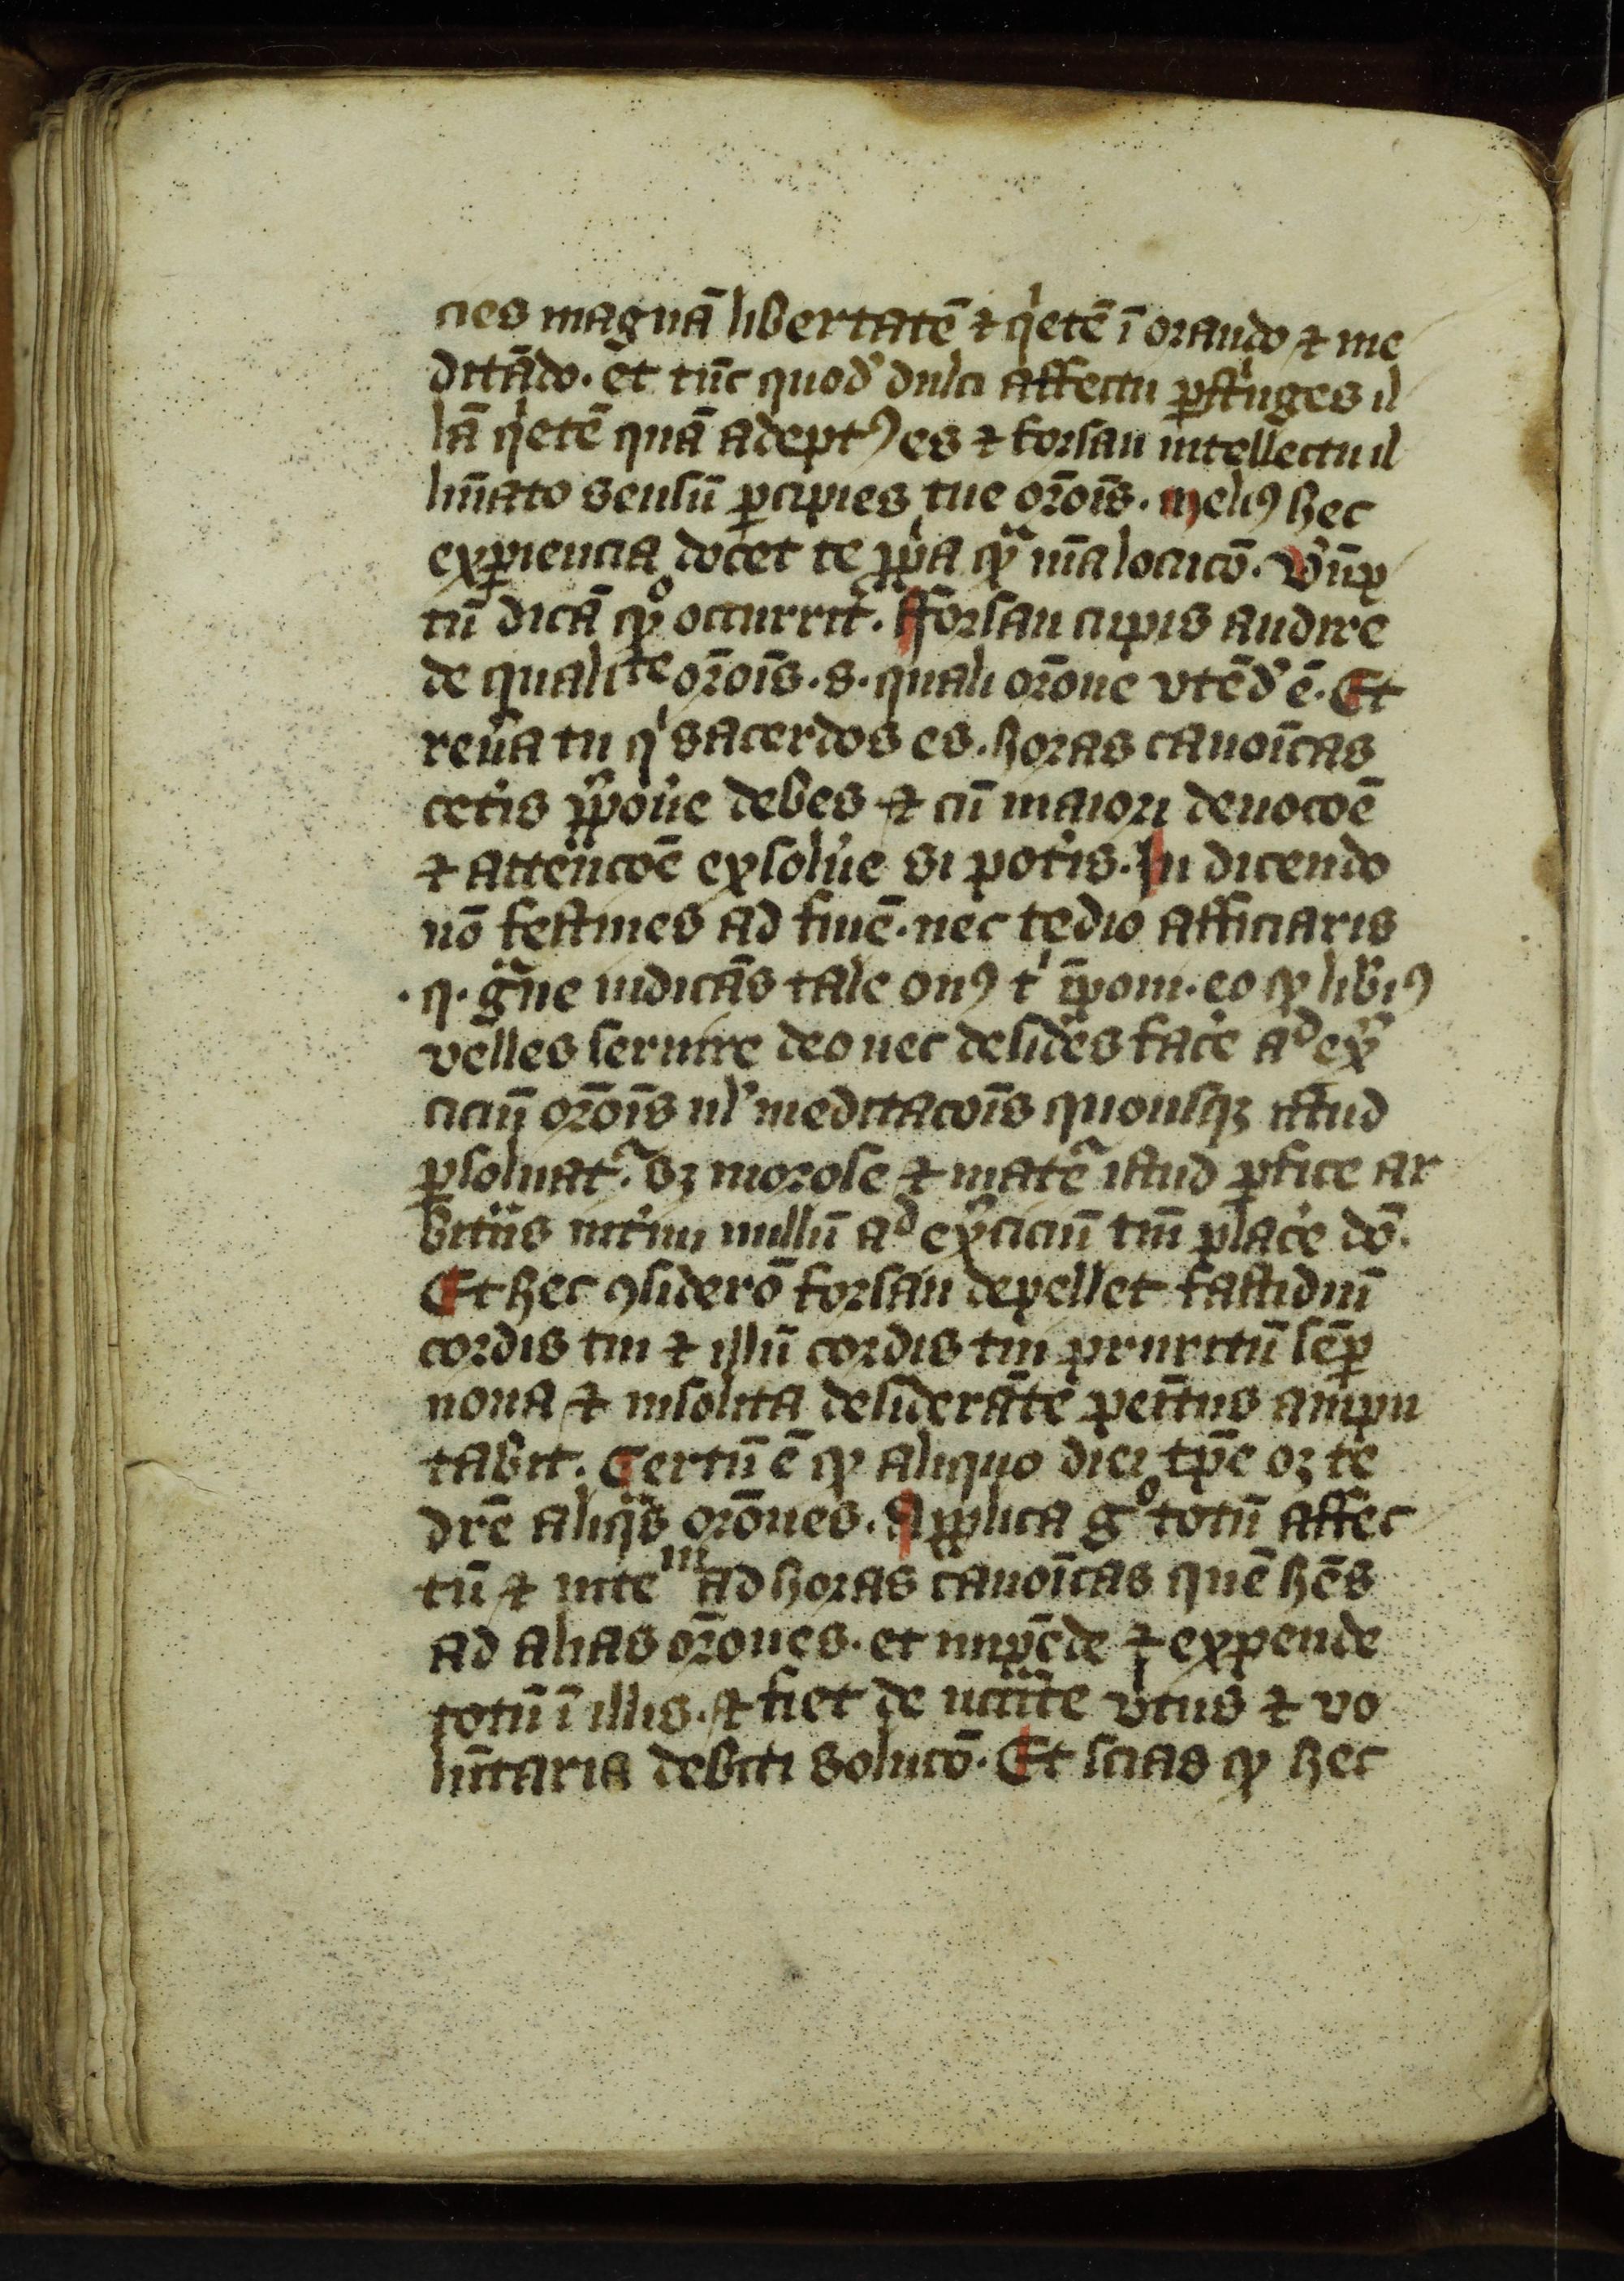 cies magnā libertatē ⁊ qͥetē ī orando ⁊ me
ditādo. et tūc quodʼ dulci affectu ꝑstͥnges il
lā qͥetē quā adeptꝰ es ⁊ forsan intellectu il
lumīato sensū ꝑcipies tue orōis. melīꝰ hec
exꝑiencia docet te ꝓpͥa qͣ ͫ mͣ locucō. Vͤūp
tū dicā qͦ occurrit. fforsan cupis audire
de qualitͭͤ orōis. s. quali orōne vtēdʼ ē. Et
reuͣa tu qͥ sacerdos es. horas canoīcas
cetͥs p̄ponͤe debes ⁊ cū maiori deuocōē
⁊ attencōē exsoluͤe si potͥs. In dicendo
nō festines ad finē. nec tedio afficiaris
.q. gͣue iudicās tale onꝰ tͥ īponi. eo ꝙ libͤīꝰ
velles seruire deo nec desides facͤe ad exͤ
ciciū orōis ulʼ meditacōis quousqꝫ istud
ꝑsoluatᷣ. sꝫ morose ⁊ matͤe istud ꝑfice ar
bitͣns intͥm nullū ad exͤciciū tm̄ placͤe dō.
Et hec ꝯsiderō forsan depellet fastidiū
cordis tui ⁊ illū cordis tui pruritū sēꝑ
noua ⁊ insolita desiderātē penitus ampu
tabit. Certū ē ꝙ aliquo diei tp̄e oꝫ te
dicͤe aliqͣs orōnes. Applica gͦ totū affec
tū ⁊ inte ͫ ad horas canoīcas quē hēs
ad alias orōnes. et impēde ⁊ expende
totū ī illis. ⁊ fiet de ncͥ̄te vͥtus ⁊ vo
lūtaria debiti solucō. Et scias ꝙ hec